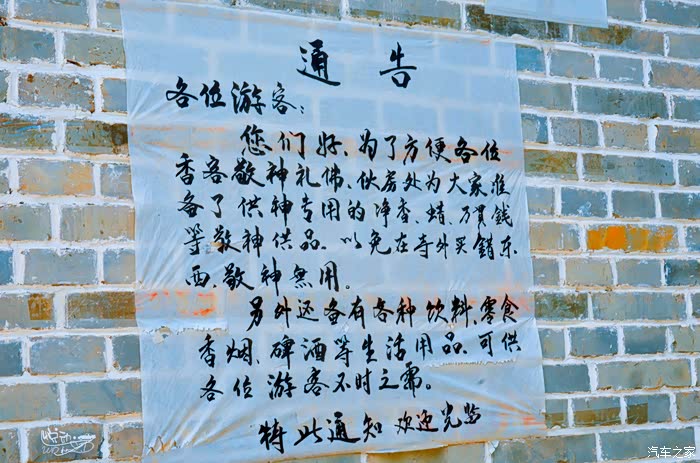 通告
各位游客:
您们好、为了方便各位
香客敬神礼佛、伙房处为大家准
备了供神专用的净香、蜡、万貫錢
等敬神供品、以免在寺外买錯东
西、敬神無用。
另外还备有各种饮料、零食
香烟、碑酒等生活用品、可供
各位游客不时之需。
特此通知 欢迎光临
汽车之家